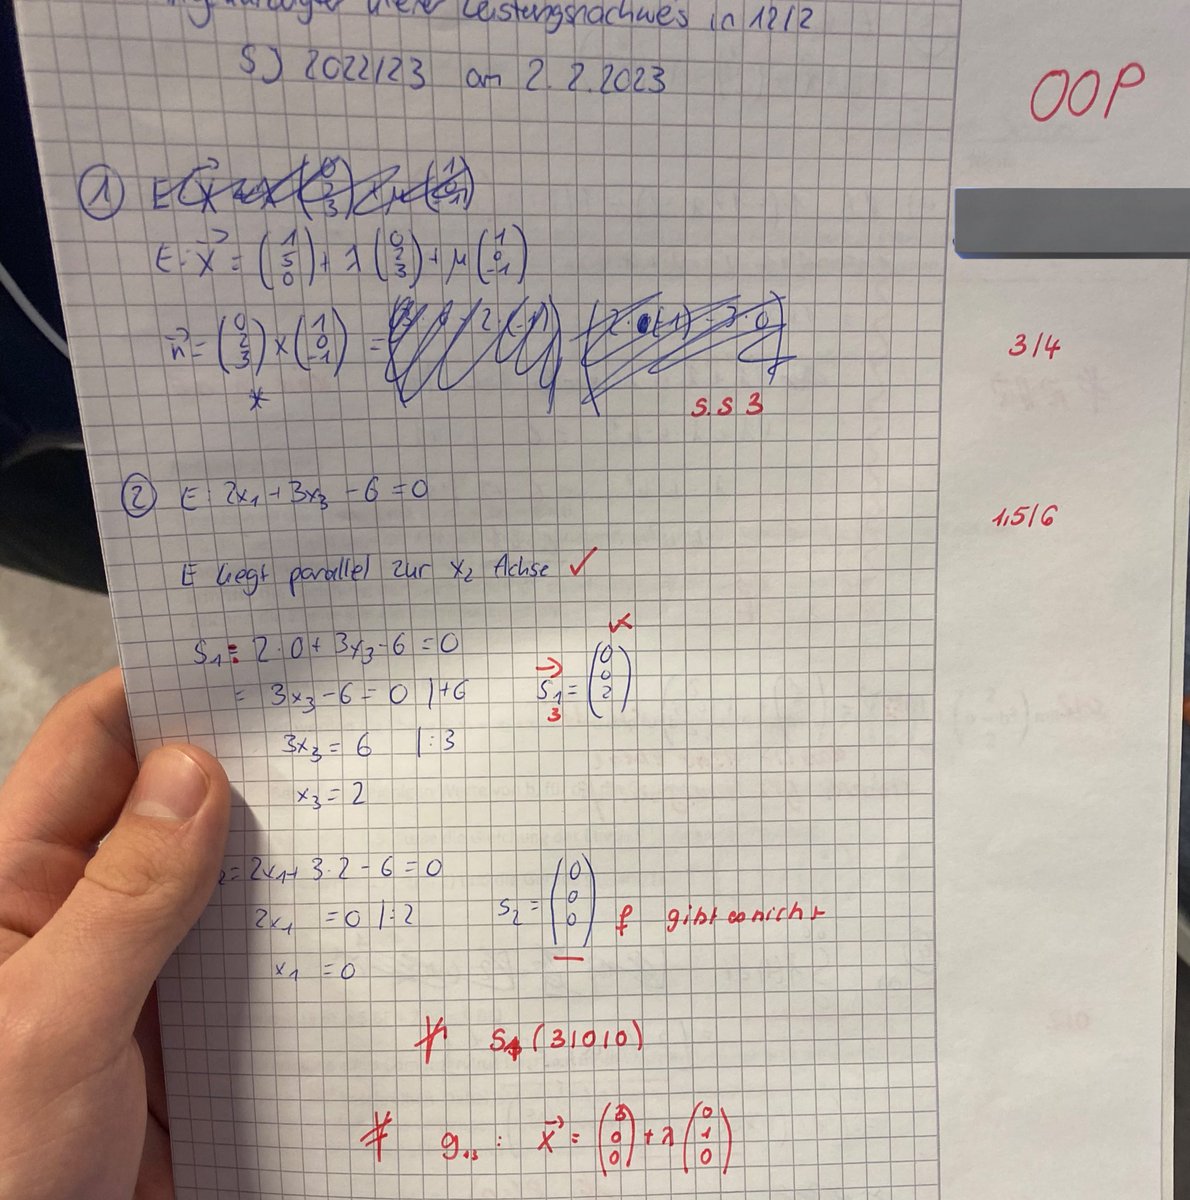 Leistungsnachweis in 12/2
SJ 2022/23 am 2.2.2023
00P
① E: x⃗ = (1 5 0) + λ (0 2 3) + μ (1 0 -1)
3/4
n⃗ = (0 2 3) × (1 0 -1) =
*
s.S 3
② E: 2x₁ + 3x₃ - 6 = 0
1,5/6
E liegt parallel zur x₂ Achse ✓
S₁: 2·0 + 3x₃ - 6 = 0
= 3x₃ - 6 = 0 |+6
S₁ = (0 0 2)
3
3x₃ = 6 |:3
x₃ = 2
₂ = 2x₁ + 3·2 - 6 = 0
2x₁ = 0 |:2
S₂ = (0 0 0) f gibt es nicht
x₁ = 0
S₁ (3|0|0)
g₁₃: x⃗ = (3 0 0) + λ (0 1 0)